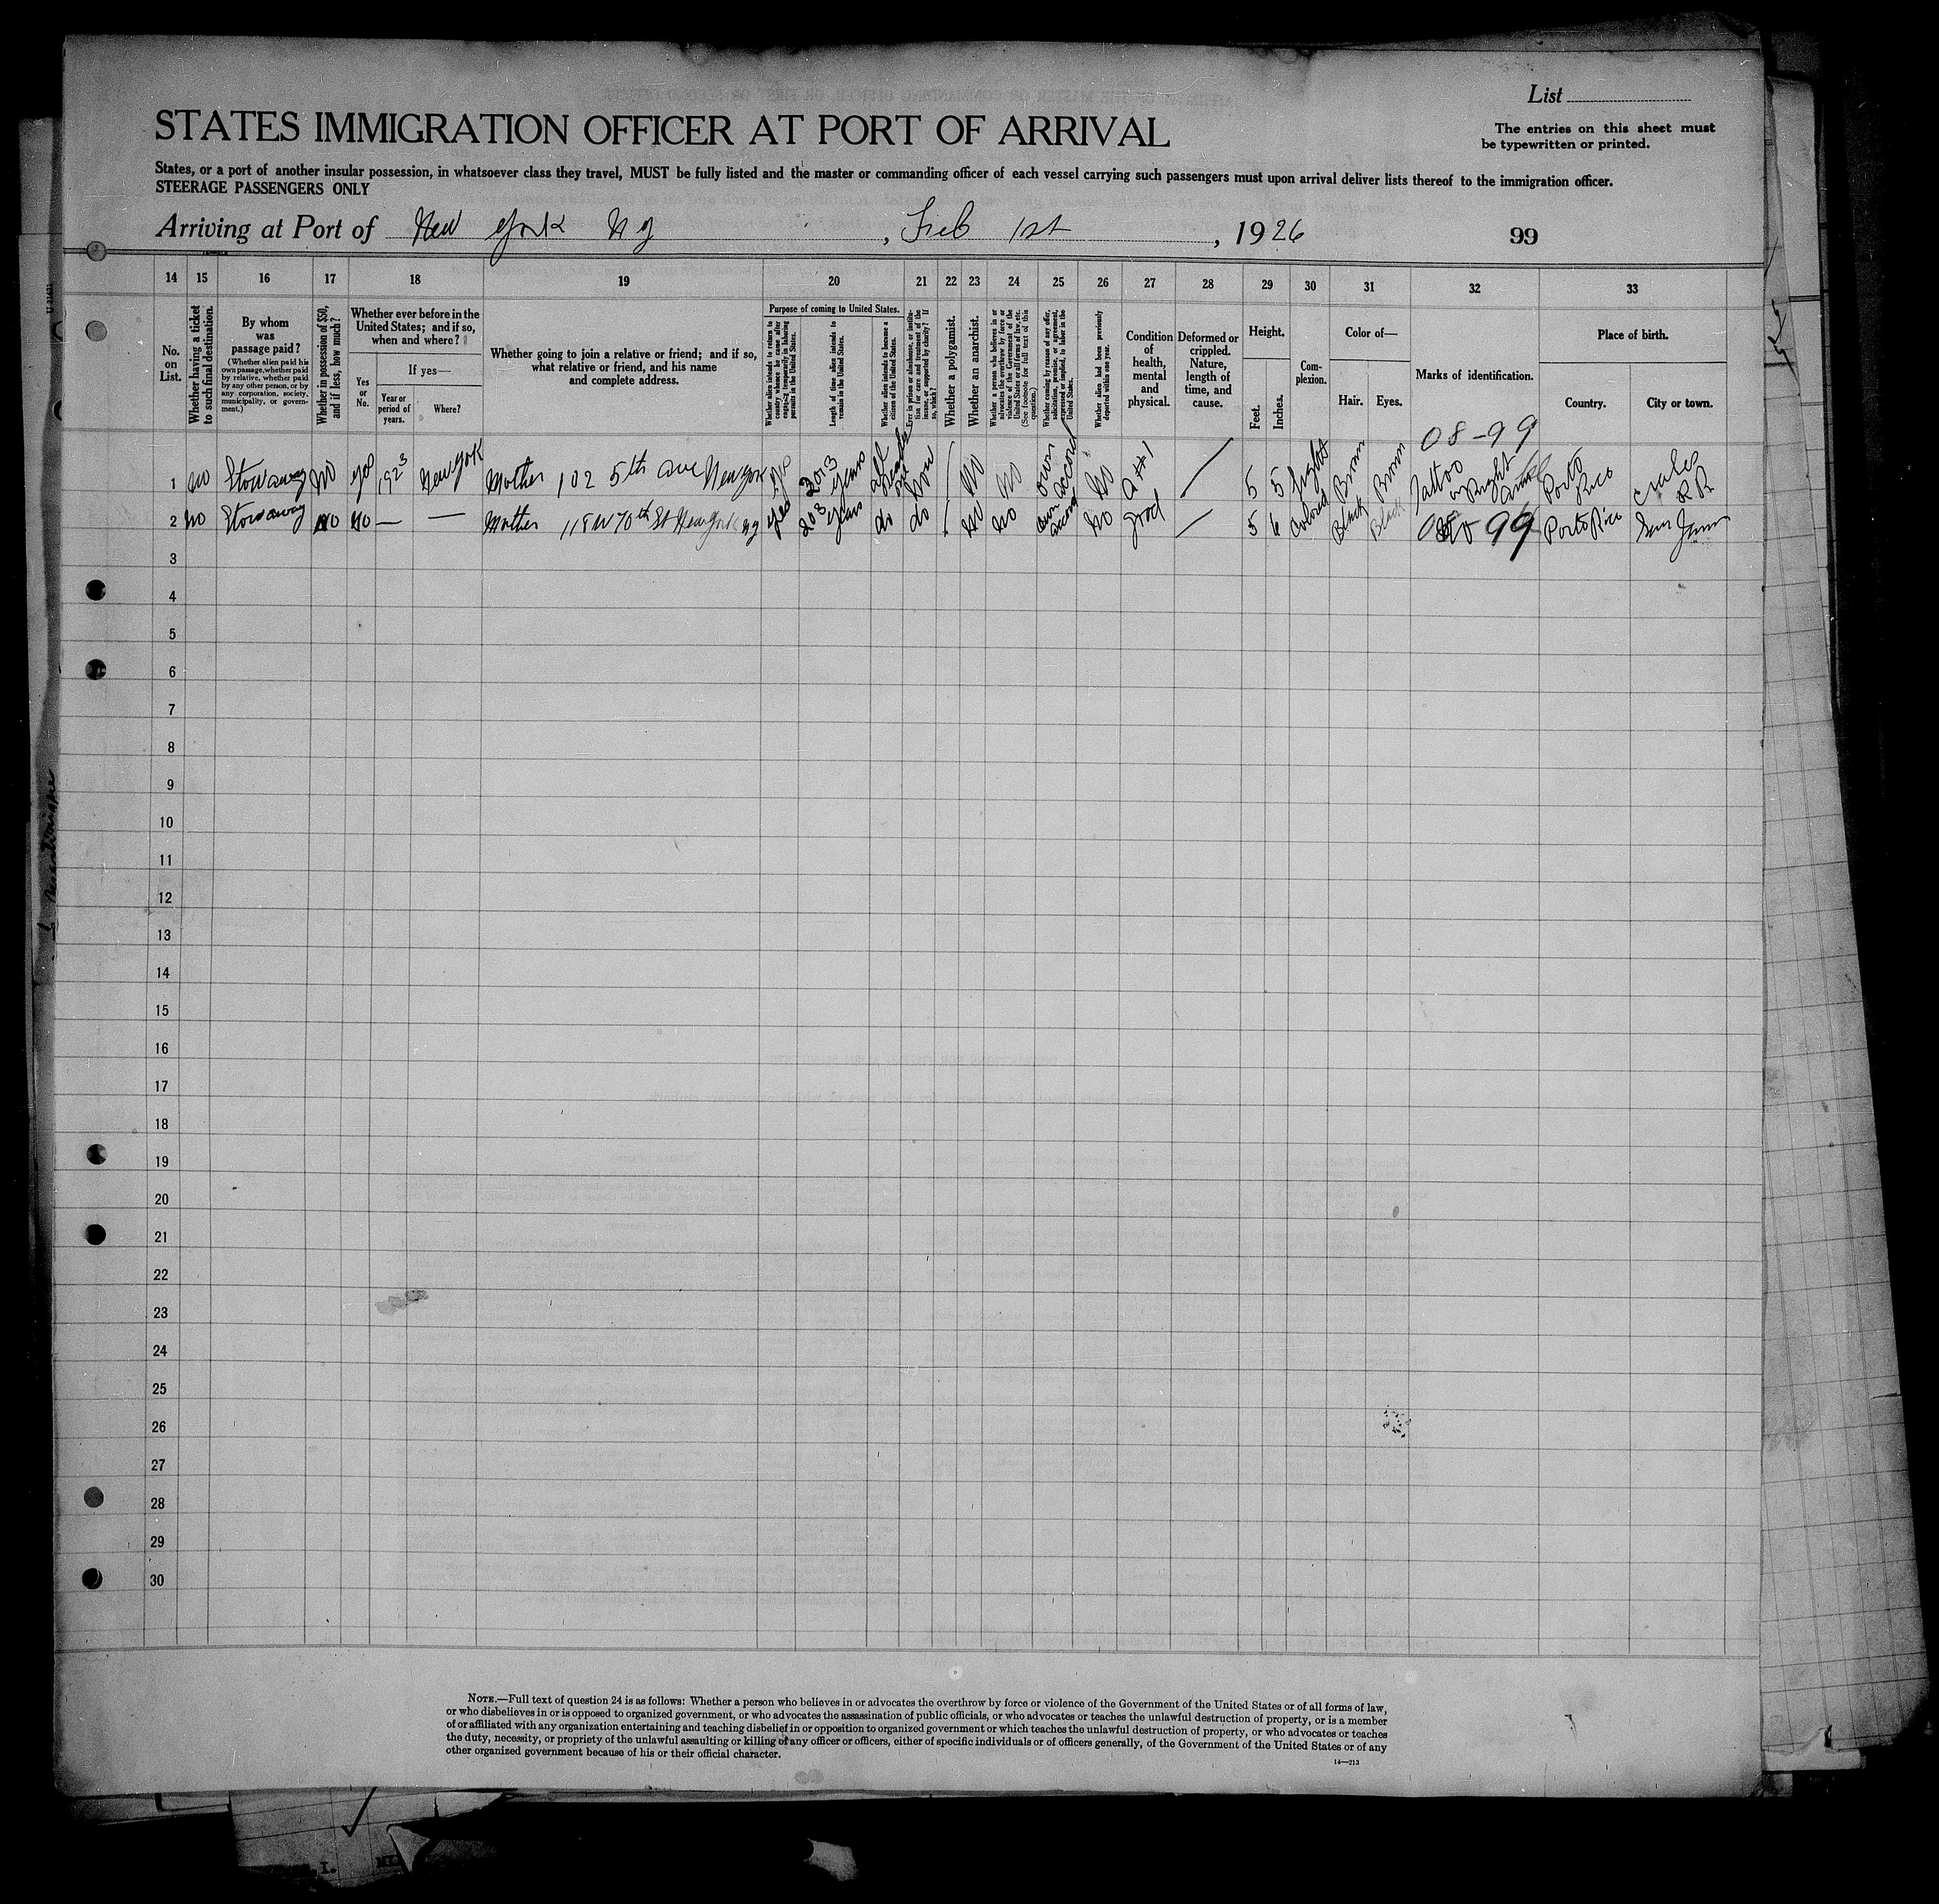 List
STATES IMMIGRATION OFFICER AT PORT OF ARRIVAL
The entries on this sheet must
be typewritten or printed.
States, or a port of another insular possession, in whatsoever class they travel, MUST be fully listed and the master or commanding officer of each vessel carrying such passengers must upon arrival deliver lists thereof to the immigration officer.
STEERAGE PASSENGERS ONLY
Arriving at Port of New York N y, Feb 1st, 1926
99
14 15 16 17 18 19 20 21 22 23 24 25 26 27 28 29 30 31 32 33
No. on List.
Whether having a ticket to such final destination.
By whom was passage paid?
(Whether alien paid his own passage, whether paid by relative, whether paid by any other person, or by any corporation, society, municipality, or government.)
Whether in possession of $50, and if less, how much?
Whether ever before in the United States; and if so, when and where?
Yes or No.
If yes—
Year or period of years.
Where?
Whether going to join a relative or friend; and if so, what relative or friend, and his name and complete address.
Purpose of coming to United States.
Whether alien intends to return to country whence he came after engaging temporarily in laboring pursuits in the United States.
Length of time alien intends to remain in the United States.
Whether alien intends to become a citizen of the United States.
Ever in prison or almshouse, or institution for care and treatment of the insane, or supported by charity? If so, which?
Whether a polygamist.
Whether an anarchist.
Whether a person who believes in or advocates the overthrow by force or violence of the Government of the United States or all forms of law, etc. (See footnote for full text of this question.)
Whether coming by reason of any offer, solicitation, promise, or agreement, expressed or implied, to labor in the United States.
Whether alien had been previously deported within one year.
Condition of health, mental and physical.
Deformed or crippled. Nature, length of time, and cause.
Height.
Feet.
Inches.
Complexion.
Color of—
Hair.
Eyes.
Marks of identification.
Place of birth.
Country.
City or town.
08-99
1 No Stowaway No yes 1923 New York Mother 102 5th ave New York yes 2 or 3 years None No No own accord No A##1 5 5 Light Brown Brown Tattoo on Right Porto Rico
2 No Stowaway No No — — Mother 118 W 70th St New York Ny yes 2 or 3 years do do No No own accord No good 5 6 Colored Black Black No 99 Porto Rico San Juan
3
4
5
6
7
8
9
10
11
12
13
14
15
16
17
18
19
20
21
22
23
24
25
26
27
28
29
30
NOTE.—Full text of question 24 is as follows: Whether a person who believes in or advocates the overthrow by force or violence of the Government of the United States or of all forms of law,
or who disbelieves in or is opposed to organized government, or who advocates the assassination of public officials, or who advocates or teaches the unlawful destruction of property, or is a member
of or affiliated with any organization entertaining and teaching disbelief in or opposition to organized government or which teaches the unlawful destruction of property, or who advocates or teaches
the duty, necessity, or propriety of the unlawful assaulting or killing of any officer or officers, either of specific individuals or of officers generally, of the Government of the United States or of any
other organized government because of his or their official character.
14—213